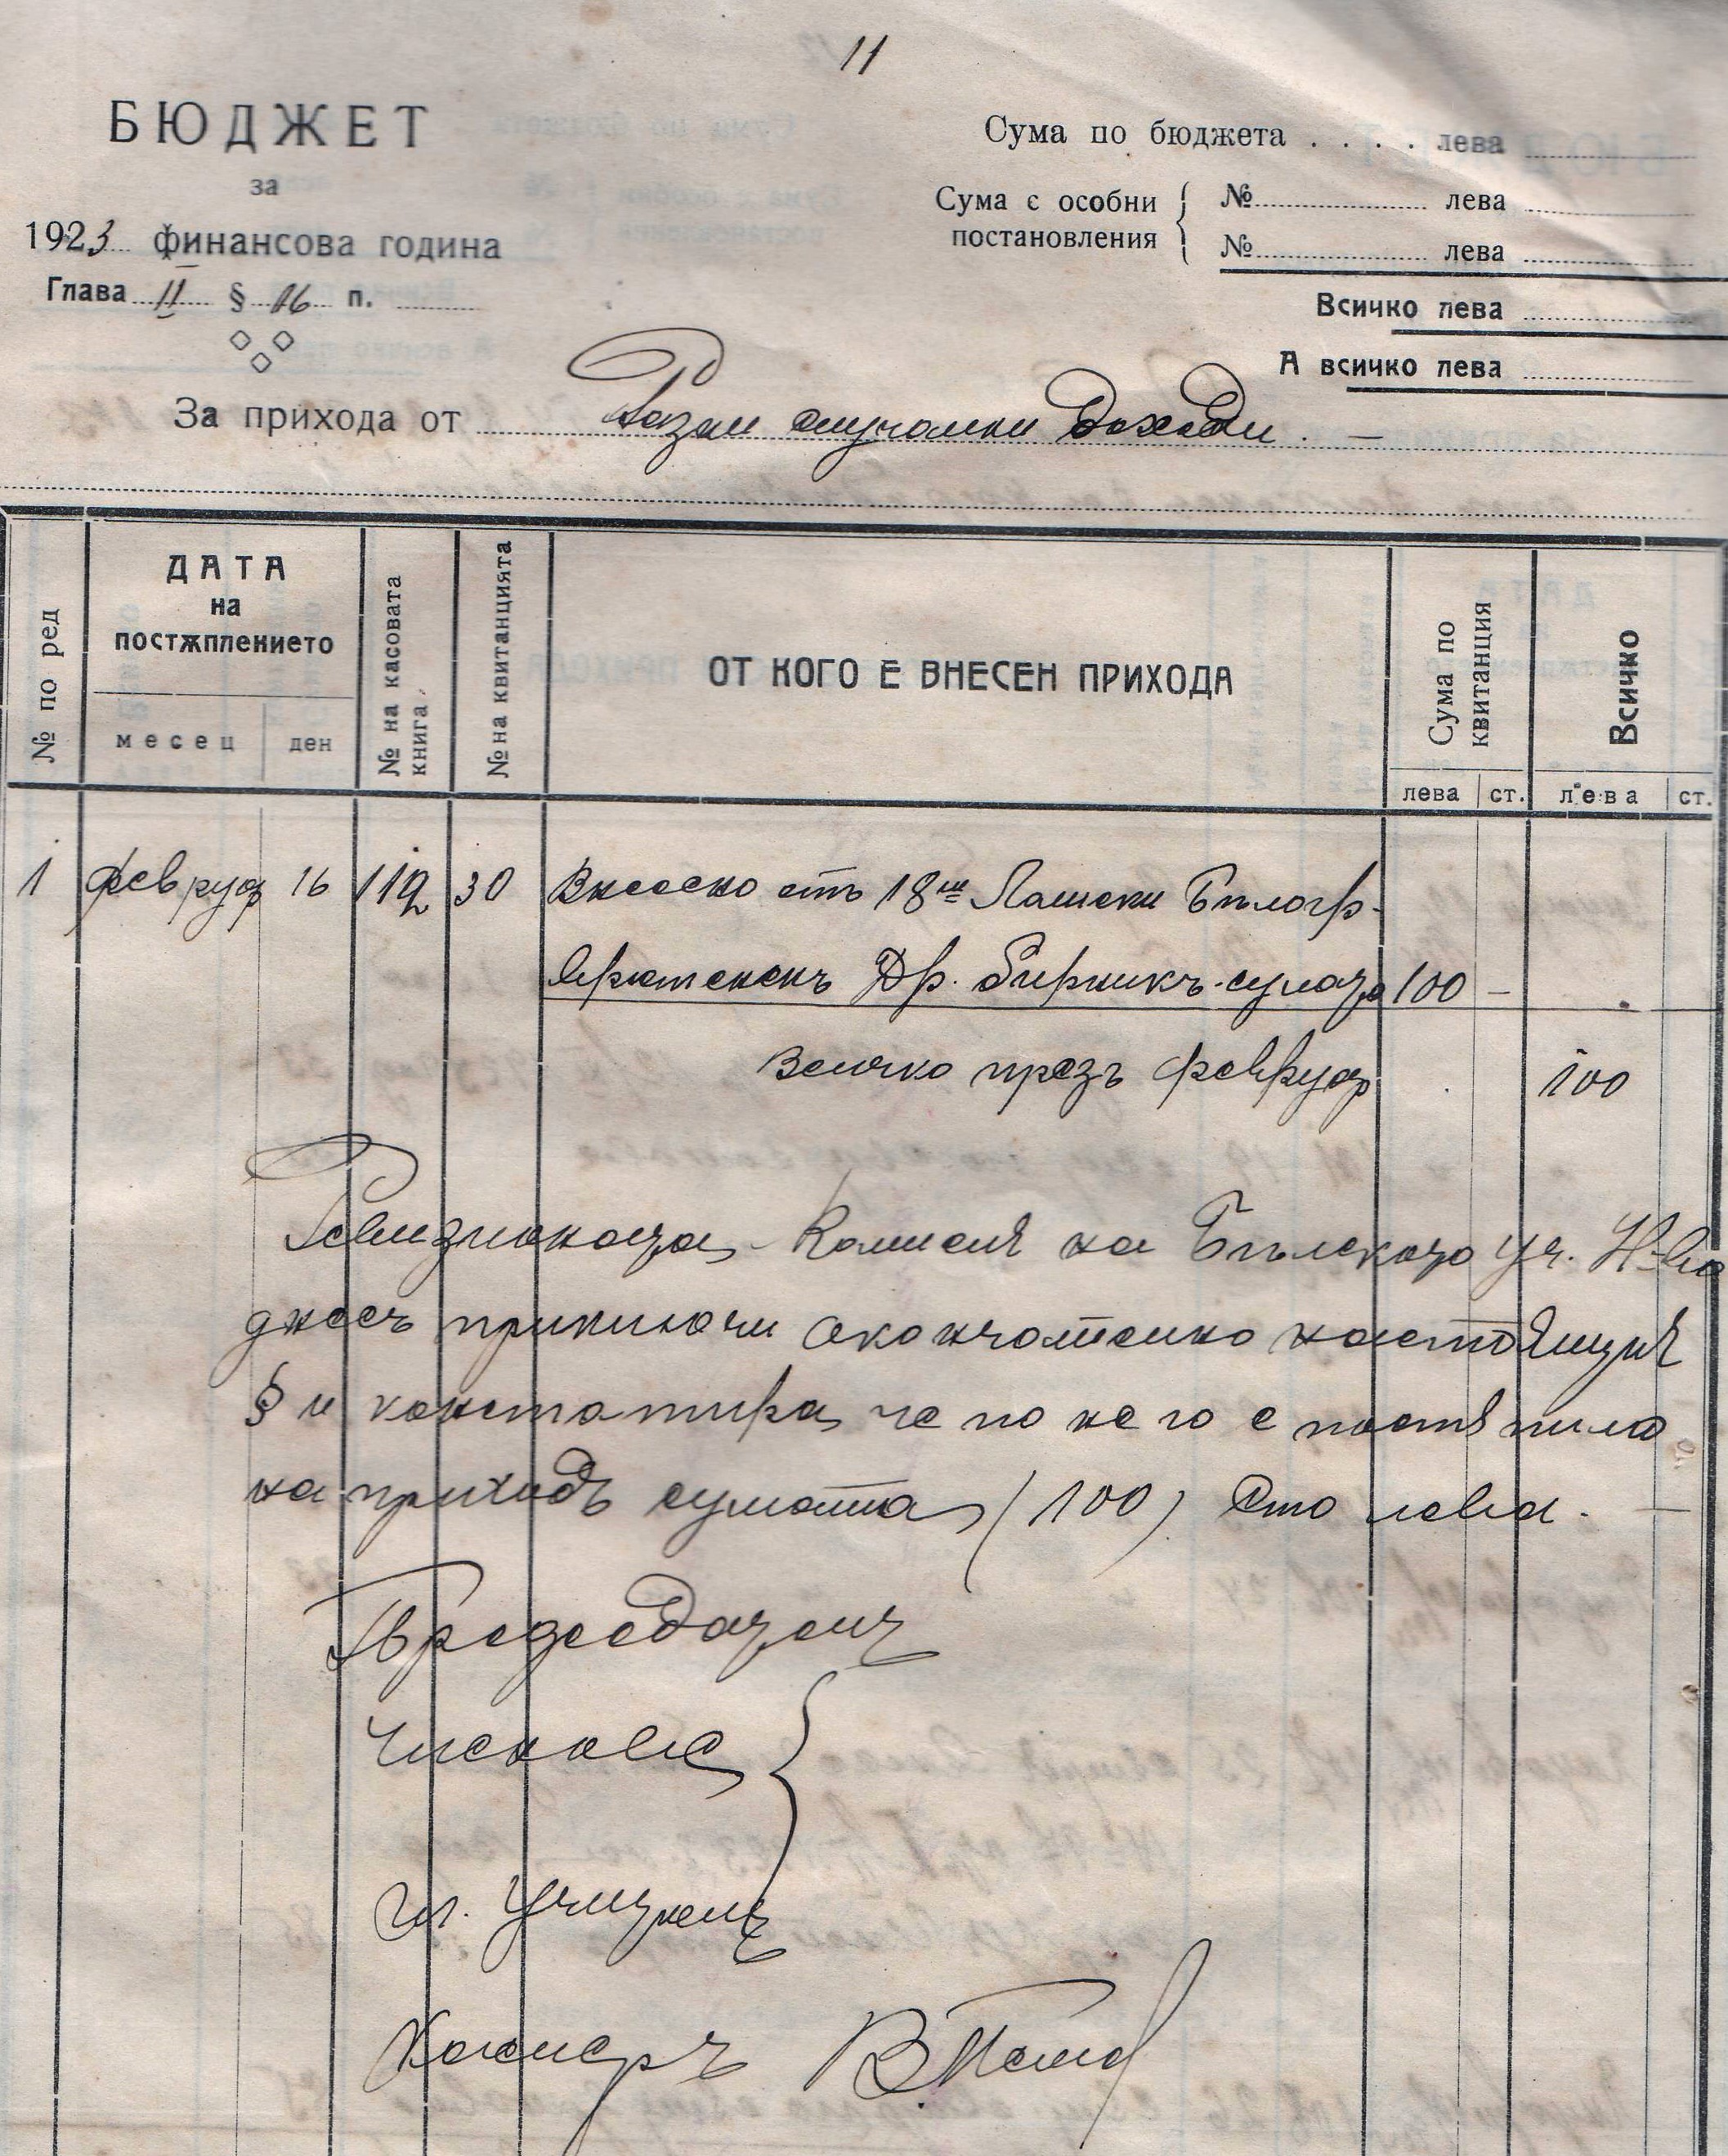 11
БЮДЖЕТ
за
1923 финансова година
Глава II § 16 п.
Сума по бюджета . . . . лева
Сума с особни постановления
№ лева
№ лева
Всичко лева
А всичко лева
За прихода от Разни случайни доходи. —
№ по ред
ДАТА
на
постѫплението
месец
ден
№ на касовата книга
№ на квитанцията
ОТ КОГО Е ВНЕСЕН ПРИХОДА
Сума по квитанция
Всичко
лева ст. лева ст.
1 февруар 16 112 30 Внесено отъ 18
Др. Бирникъ сумата 100 –
Всичко презъ февруар 100
Ревизионата Комисия на Бѣлското Уч. Н-во
днесъ приключи окончателно настоящия
§ и констатира че по него е постѫпило
на приходъ сумата (100) Сто лева. —
Председателъ
Членове
Гл. Учитель
Касиеръ